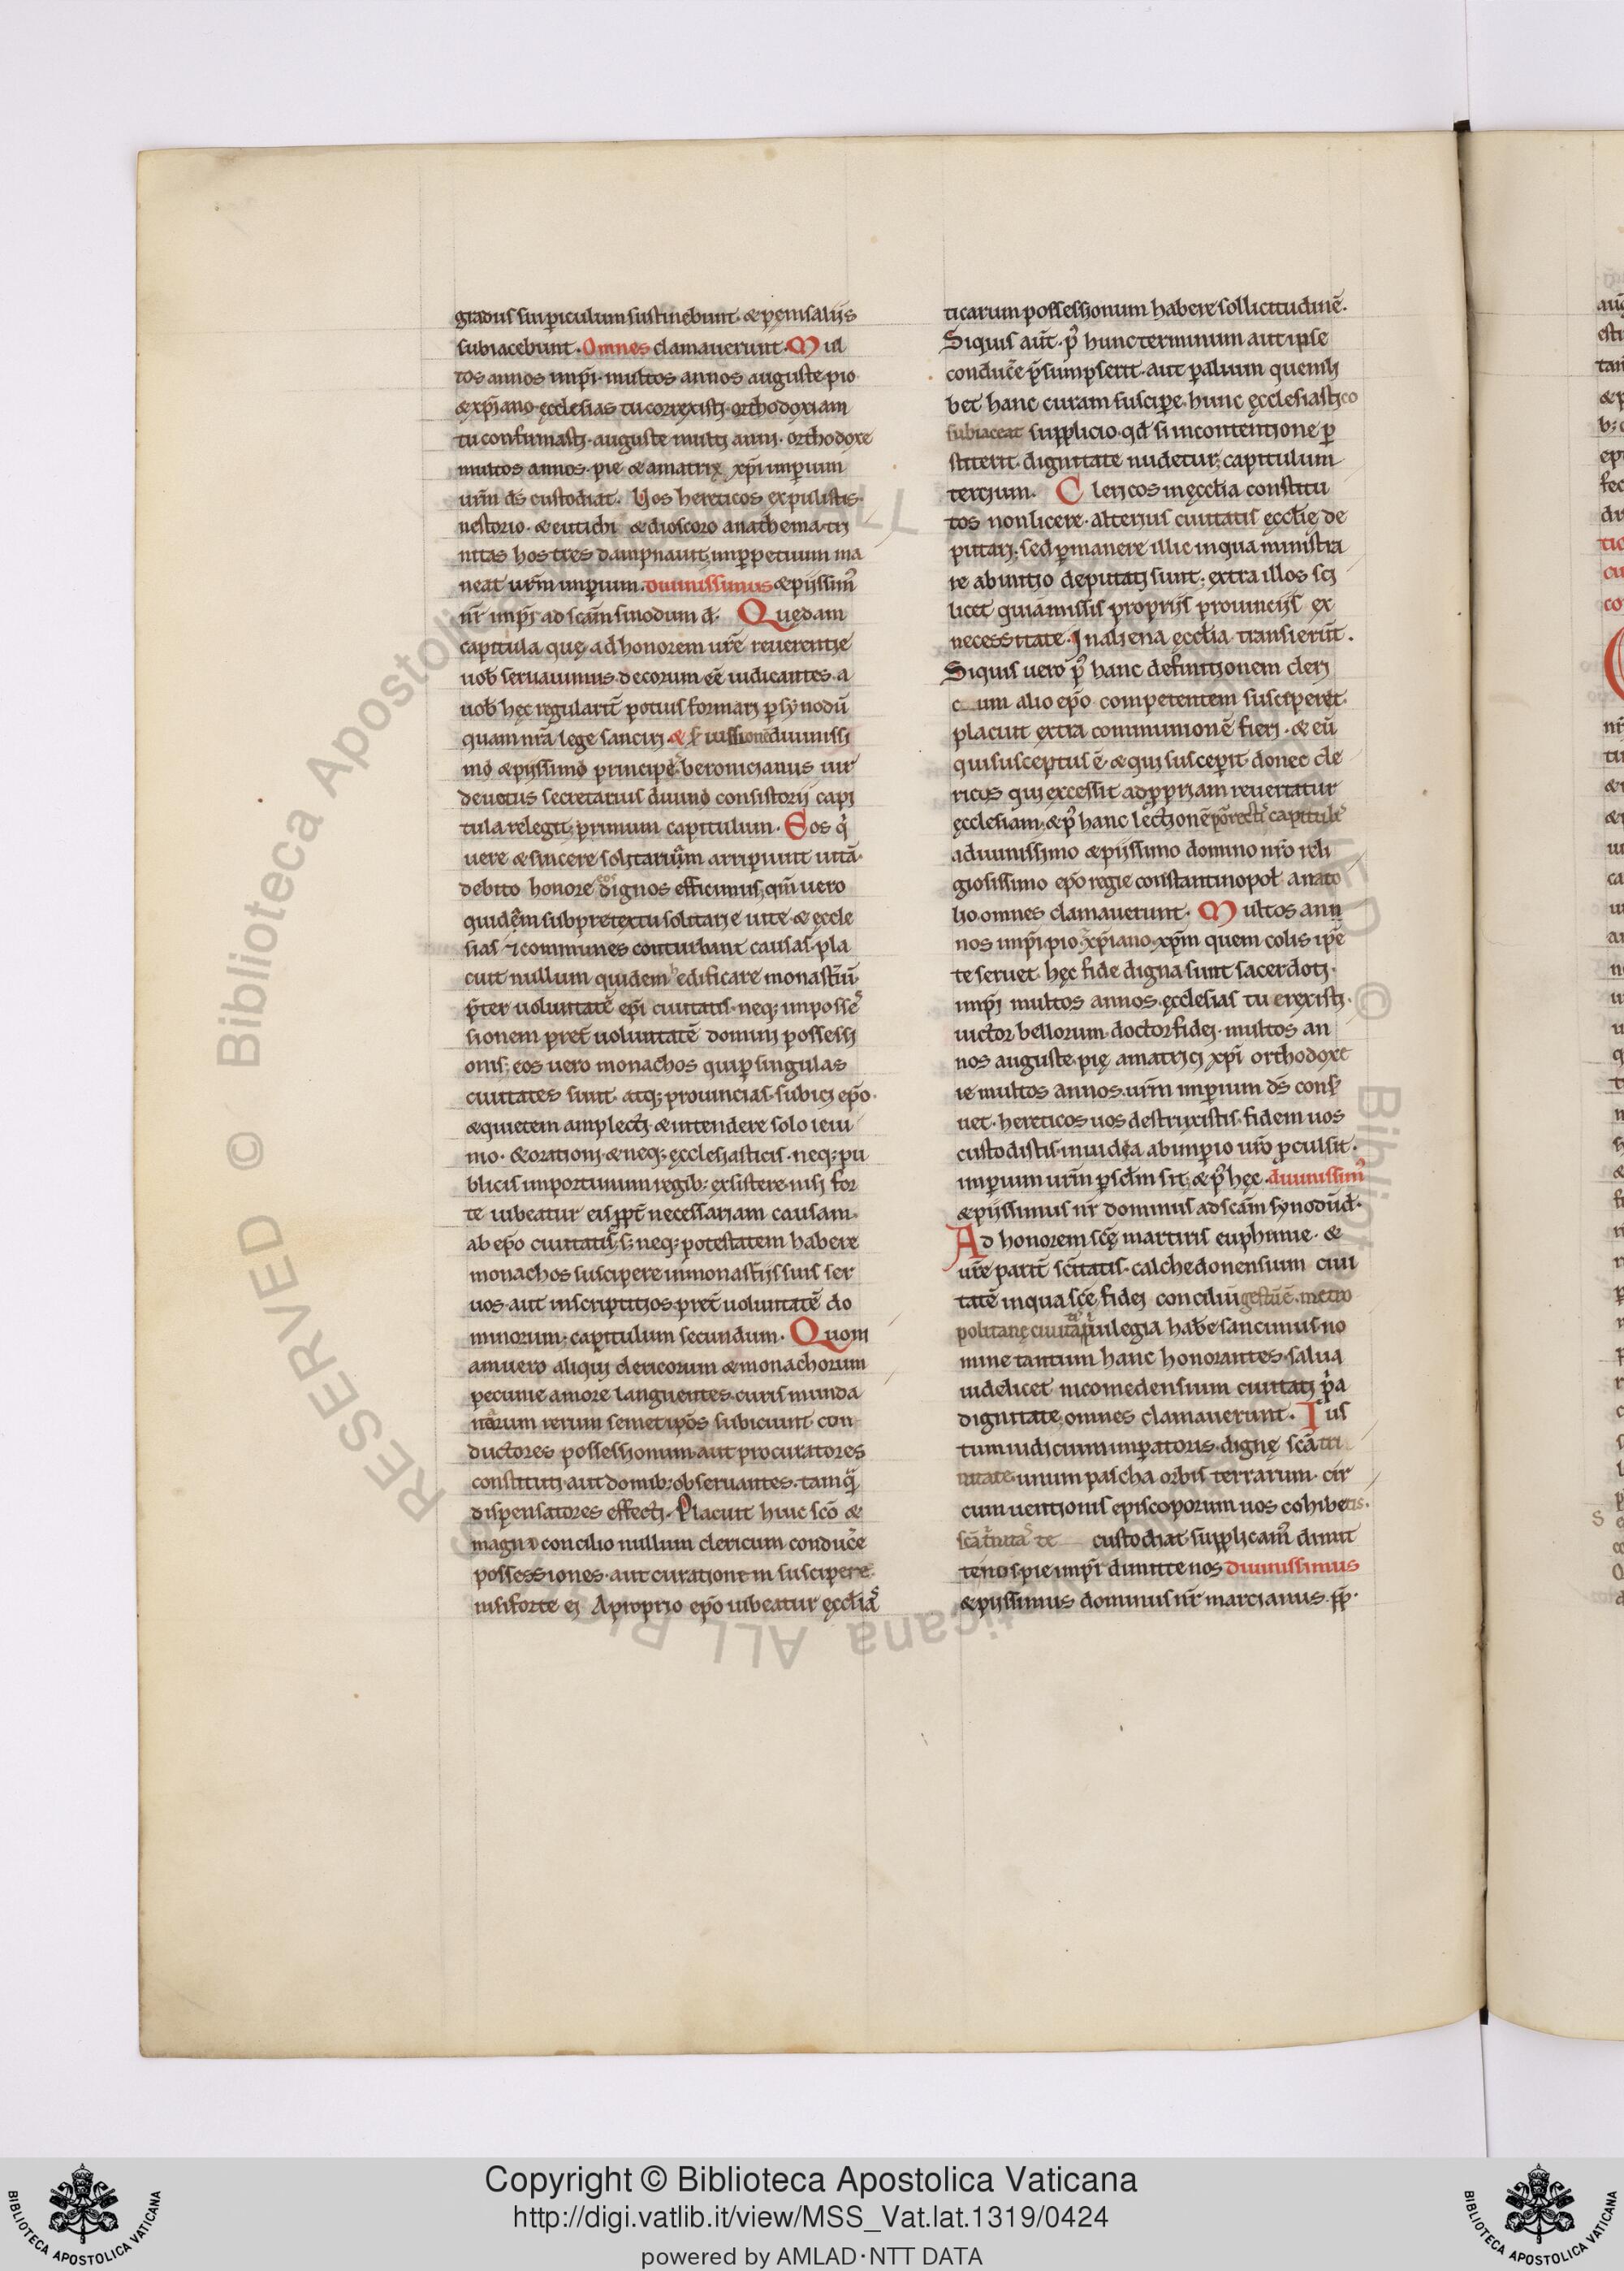 gradus sui periculum sustinebunt. & penis aliis
subiacebunt. Omnes clamauerunt. Mul
tos annos imp̄r. multos annos auguste. pio
& xp̄iano. ęcclesias tu correxisti. orthodoxiam
tu confirmasti. auguste multi anni. orthodoxe
multos annos. pie & amatrix xp̄i imperium
ur̄m d̄s custodiat. Vos hereticos expulistis.
nestorio. & eutichi & dioscoro anathema. tri
nitas hos tres dampnauit; inperpetuum ma
neat ur̄m imperium. diuinissimus & piissim᾿
nr̄ imp̄r ad sc̄am sinodum d̄. Quędam
capitula quę ad honorem ur̄e reuerentię
uob̄ seruauimus. decorum ee᷃ iudicantes. a
uob̄ hęc regularit᷃ potius formari per synodū
quam nr̄a lege sanciri. & iussionē diuinissi
mo & piissimo principe. beronicianus uir
deuotus secretarius diuino consistorii capi
tula relegit; primum capitulum. Eos q̇
uere & sincere solitariam arripiunt uitā.
debito honore dignos efficimus; qm̄ uero
quidem sub pretextu solitarię uite & ęccle
sias & communes conturbant causas. pla
cuit nullum quidem edificare monast᷃iū.
p̄ter uoluntatē ep̄i ciuitatis. neq; in posse
sionem pret᷃ uoluntatē domini possessi
onis; eos uero monachos qui per singulas
ciuitates sunt. atq; prouincias. subici ep̄o.
& quietem amplecti. & intendere solo ieiu
nio. & orationi. & neq; ęcclesiasticis. neq; pu
blicis importunum regib; exsistere. nisi for
te iubeatur eis ppt᷃ necessariam causam.
ab ep̄o ciuitatis; s; neq; potestatem habere
monachos suscipere in monast᷃iis suis ser
uos. aut inscriptitios. pret᷃ uoluntatē do
minorum; capitulum secundum. Quom
am uero aliqui clericorum & monachorum
pecunie amore languentes. curis munda
narum rerum semet ip̄os subiciunt. con
ductores possessionum. aut procuratores
constituti. aut domib; obseruantes. tamq̄
dispensatores effecti. Placuit huic sc̄o &
magno concilio nullum clericum conduc᷃e
possessiones. aut curationem suscipere.
nisi forte ei A proprio ep̄o iubeatur ęcclias
ticarum possessionum habere sollicitudinē.
Siquis aut᷃. p᾿ hunc terminum aut ipse
conduc᷃e p̄sumpserit. aut per alium quemli
bet hanc curam suscipe. hunc ęcclesiastico
subiaceat supplicio. qd̄ si in contentione per
stiterit. dignitate nudetur; capitulum
tertium. Clericos in ęcclia constitu
tos non licere. alterius ciuitatis ęcclię de
putari; sed permanere illic in qua ministra
re ab initio deputati sunt; extra illos sci
licet qui amissis propriis prouinciis ex
necessitate. In aliena ęcclia transierūt.
Siquis uero p᾿ hanc definitionem cleri
c um alio ep̄o competentem susciperet.
placuit extra communionē fieri. & eū
qui susceptus ē. & qui susceperit. donec cle
ricus qui excessit ad ppriam reuertatur
ęcclesiam; & p᾿ hanc lectionē porrectis capitulis
a diuinissimo & piissimo domino nr̄o reli
giosissimo ep̄o regie constantinopol̄ anato
lio. omnes clamauerunt. Multos ann
nos imp̄i. pio. xp̄iano. xp̄m quem colis ip̄e
te seruet. hęc fide digna sunt sacerdoti.
imp̄i multos annos. ęcclesias tu erexisti.
uictor bellorum. doctor fidei. multos an
nos auguste. pię amatrici xp̄i orthodoxe
ie multos annos. ur̄m imperium d̄s conser
uet. hereticos uos destruxistis. fidem uos
custodistis. inuidia ab imperio ur̄o pculsit.
imperium ur̄m per scl̄m sit; & p᾿ hęc. diuinissim᾿
& piissimus nr̄ dominus ad sc̄am synodū d̄.
Ad honorem sc̄ę martiris euphimie. &
ur̄e parit᷃ sc̄itatis. calchedonensium ciui
tatē in qua sc̄e fidei concilium gestū ē. metro
politanę ciuitatis priuilegia hab᷃e sancimus. no
mine tantum hanc honorantes. salua
uidelicet nicomedensium ciuitati ppa
dignitate; omnes clamauerunt. Ius
tum iudicium imperatoris. dignę sc̄a tri
nitate. unum pascha orbis terrarum. cir
cumuentionis episcoporum uos cohibetis.
sc̄a trinitas te custodiat supplicam᾿ dimit
te nos pie imp̄r dimitte nos diuinissimus
& piissimus dominus nr̄ marcianus. pp.
Copyright © Biblioteca Apostolica Vaticana
http://digi.vatlib.it/view/MSS_Vat.lat.1319/0424
powered by AMLAD·NTT DATA
BIBLIOTECA APOSTOLICA VATICANA
BIBLIOTECA APOSTOLICA VATICANA